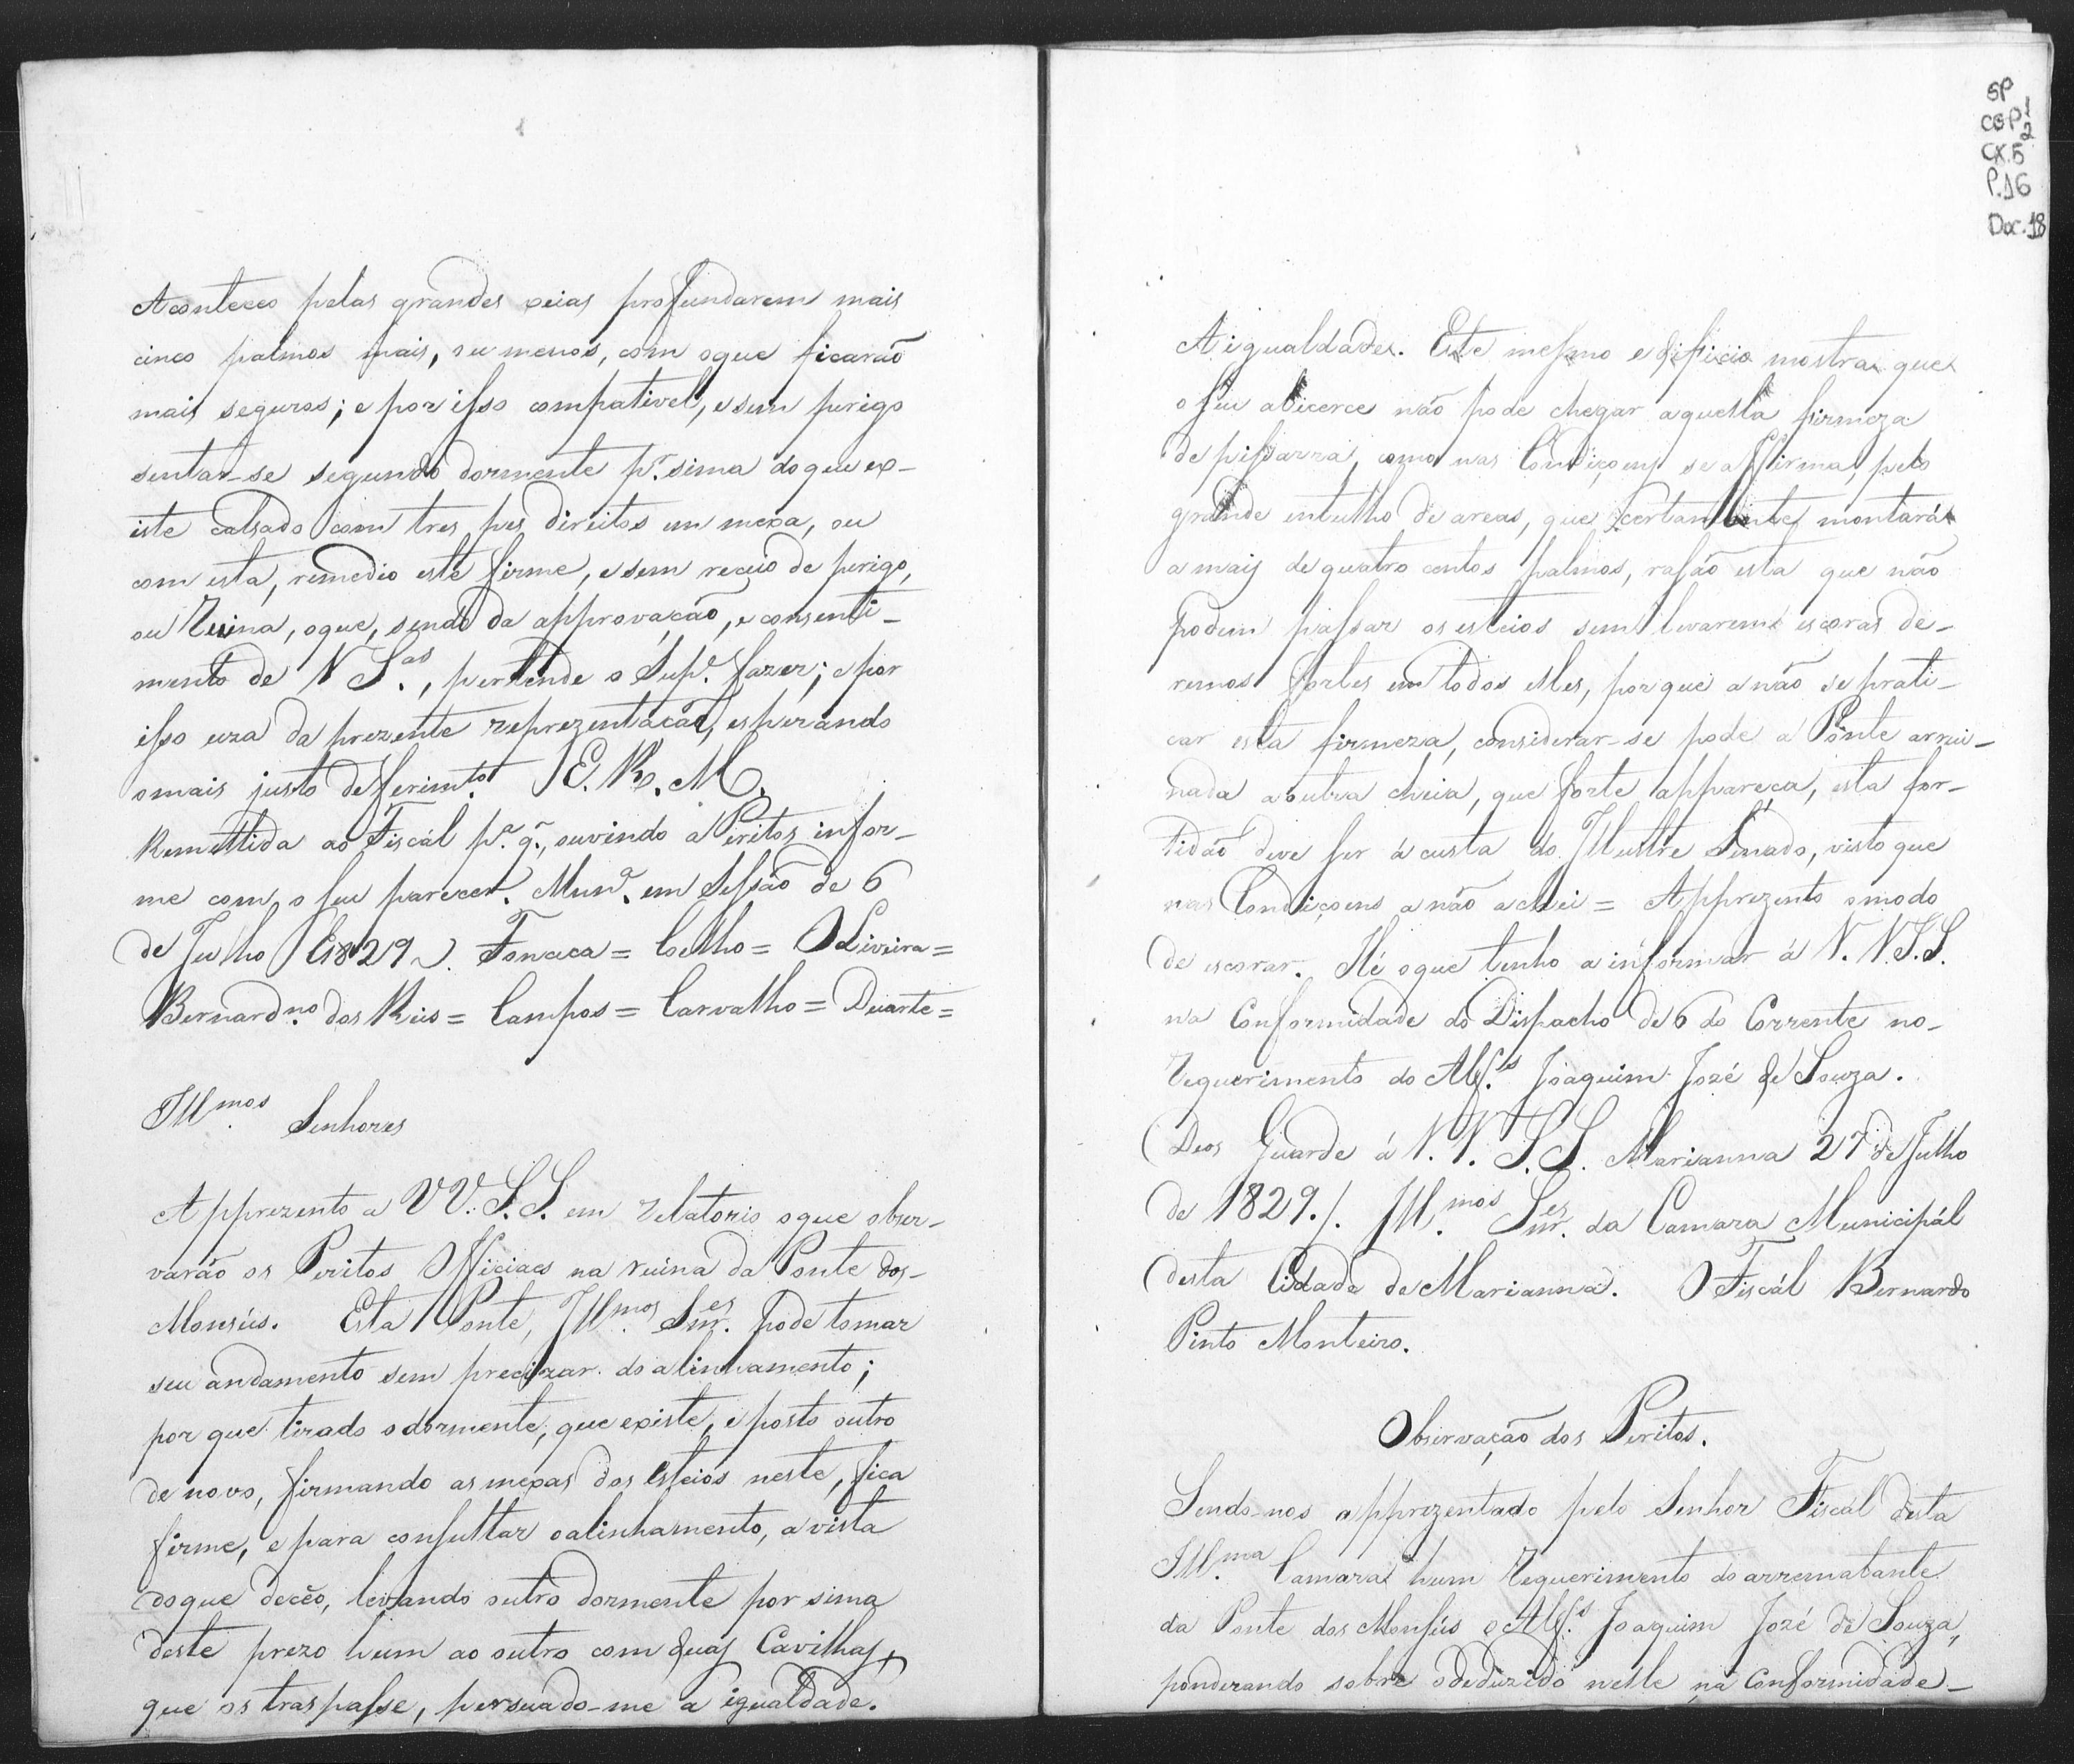 Aconteceo pelas grandes xeias profundarem mais
cinco palmos mais, ou menos, com oque ficarão
mais seguros; e por isso compativel, e sem perigo
sentar-se segundo dormente pr. sima do que ex-
iste calsado com tres pes direitos em mexa, ou
com esta, remedio este firme, e sem receio de perigo,
ou Ruina, oque, sendo da approvação, e consenti-
mento de V S.as, pertende o Supe. fazer; e por
isso uza da prezente reprezentação, esperando
omais justo deferimto. E. R. M.
Remettida ao Fiscál pa. q., ouvindo a Peritos infor-
me com o seu parecer. Mar.na em Sessão de 6
de Julho 1829. Fonceca = Coelho = Oliveira =
Bernardno. dos Reis = Campos = Carvalho = Duarte =
Illmos. Senhores
Apprezento a V V. S. S. em relatorio oque obser-
varão os Peritos Officiaes na ruina da Ponte dos-
Monsús. Esta Ponte, Illmos. Snres. pode tomar
seu andamento sem precizar do alinhamento;
por que tirado o dormente, que existe, e posto outro
de novo, firmando as mexas dos Esteios neste, fica
firme, e para consultar o alinhamento, a vista
do que decêo, levando outro dormente por sima
deste prezo hum ao outro com duas Cavilhas,
que os traspasse, persuado-me a igualdade.
SP
CGP 1/2
CX.5
P.16
Doc. 18
A igualdade. Este mesmo edificio mostra que
o seu alicerce não pode chegar aquella firmeza
de pissarra, como nas Condiçoens se affirma, pelo
grande entulho de areas, que certamente montará
a mais de quatro centos palmos, rasão esta que não
podem passar os esteios sem levarem escoras de-
remos fortes em todos elles, porque a não se prati-
car esta firmeza, considerar-se pode a Ponte arrui-
nada a outra cheia, que forte appareça, esta for-
tidão deve ser á custa do Illustre Senado, visto que
nas Condiçoens a não achei = Apprezento o modo
de escorar. Hé oque tenho a informar á V. V. S. S.
na Conformidade do Dispacho de 6 do Corrente no-
requerimento do Alfs. Joaquim Jozé de Souza.
Deos Guarde á V. V. S. S. Marianna 27 de Julho
de 1829./. Illmos. Snres. da Camara Municipál
desta Cidade de Marianna. O Fiscál Bernardo
Pinto Monteiro.
Observação dos Peritos.
Sendo-nos apprezentado pelo Senhor Fiscál desta
Illma. Camara hum requerimento do arrematante
da Ponte dos Monsús o Alfs. Joaquim Jozé de Souza,
ponderando sobre o deduzido nelle na Conformidade-